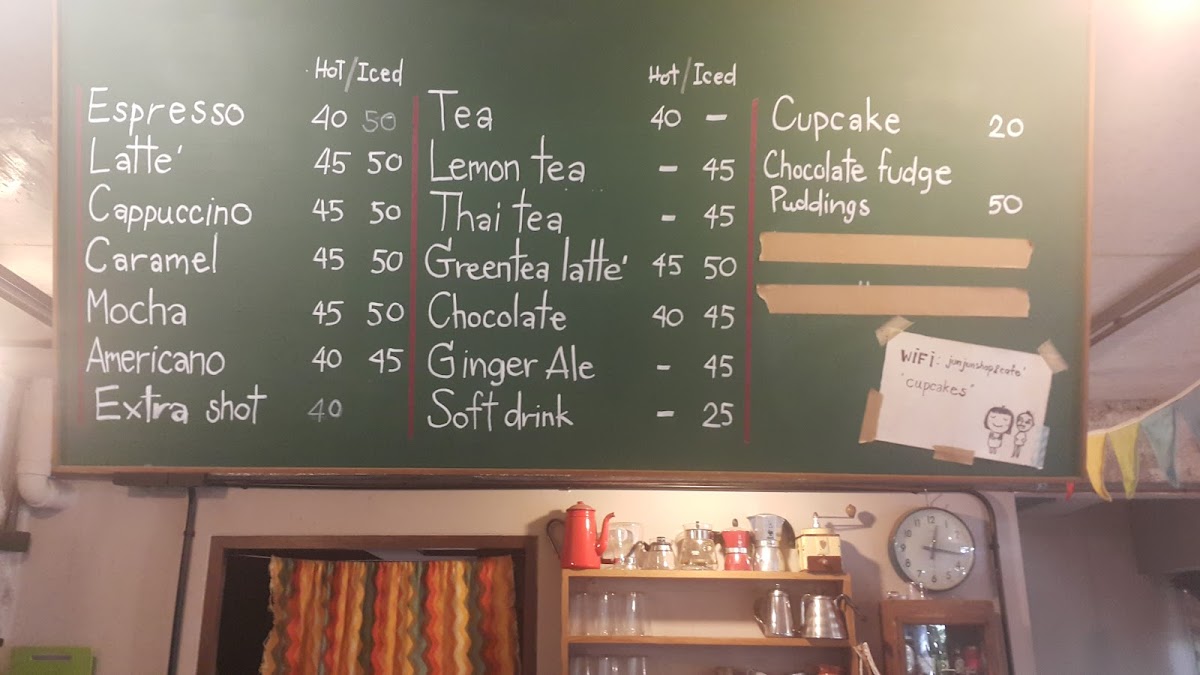 Hot/Iced
Espresso 40 50
Latte' 45 50
Cappuccino 45 50
Caramel 45 50
Mocha 45 50
Americano 40 45
Extra shot 40
Hot/Iced
Tea 40 -
Lemon tea - 45
Thai tea - 45
Greentea latte' 45 50
Chocolate 40 45
Ginger Ale - 45
Soft drink - 25
Cupcake 20
Chocolate fudge
Puddings 50
WiFi: junjunshop&cafe'
"cupcakes"